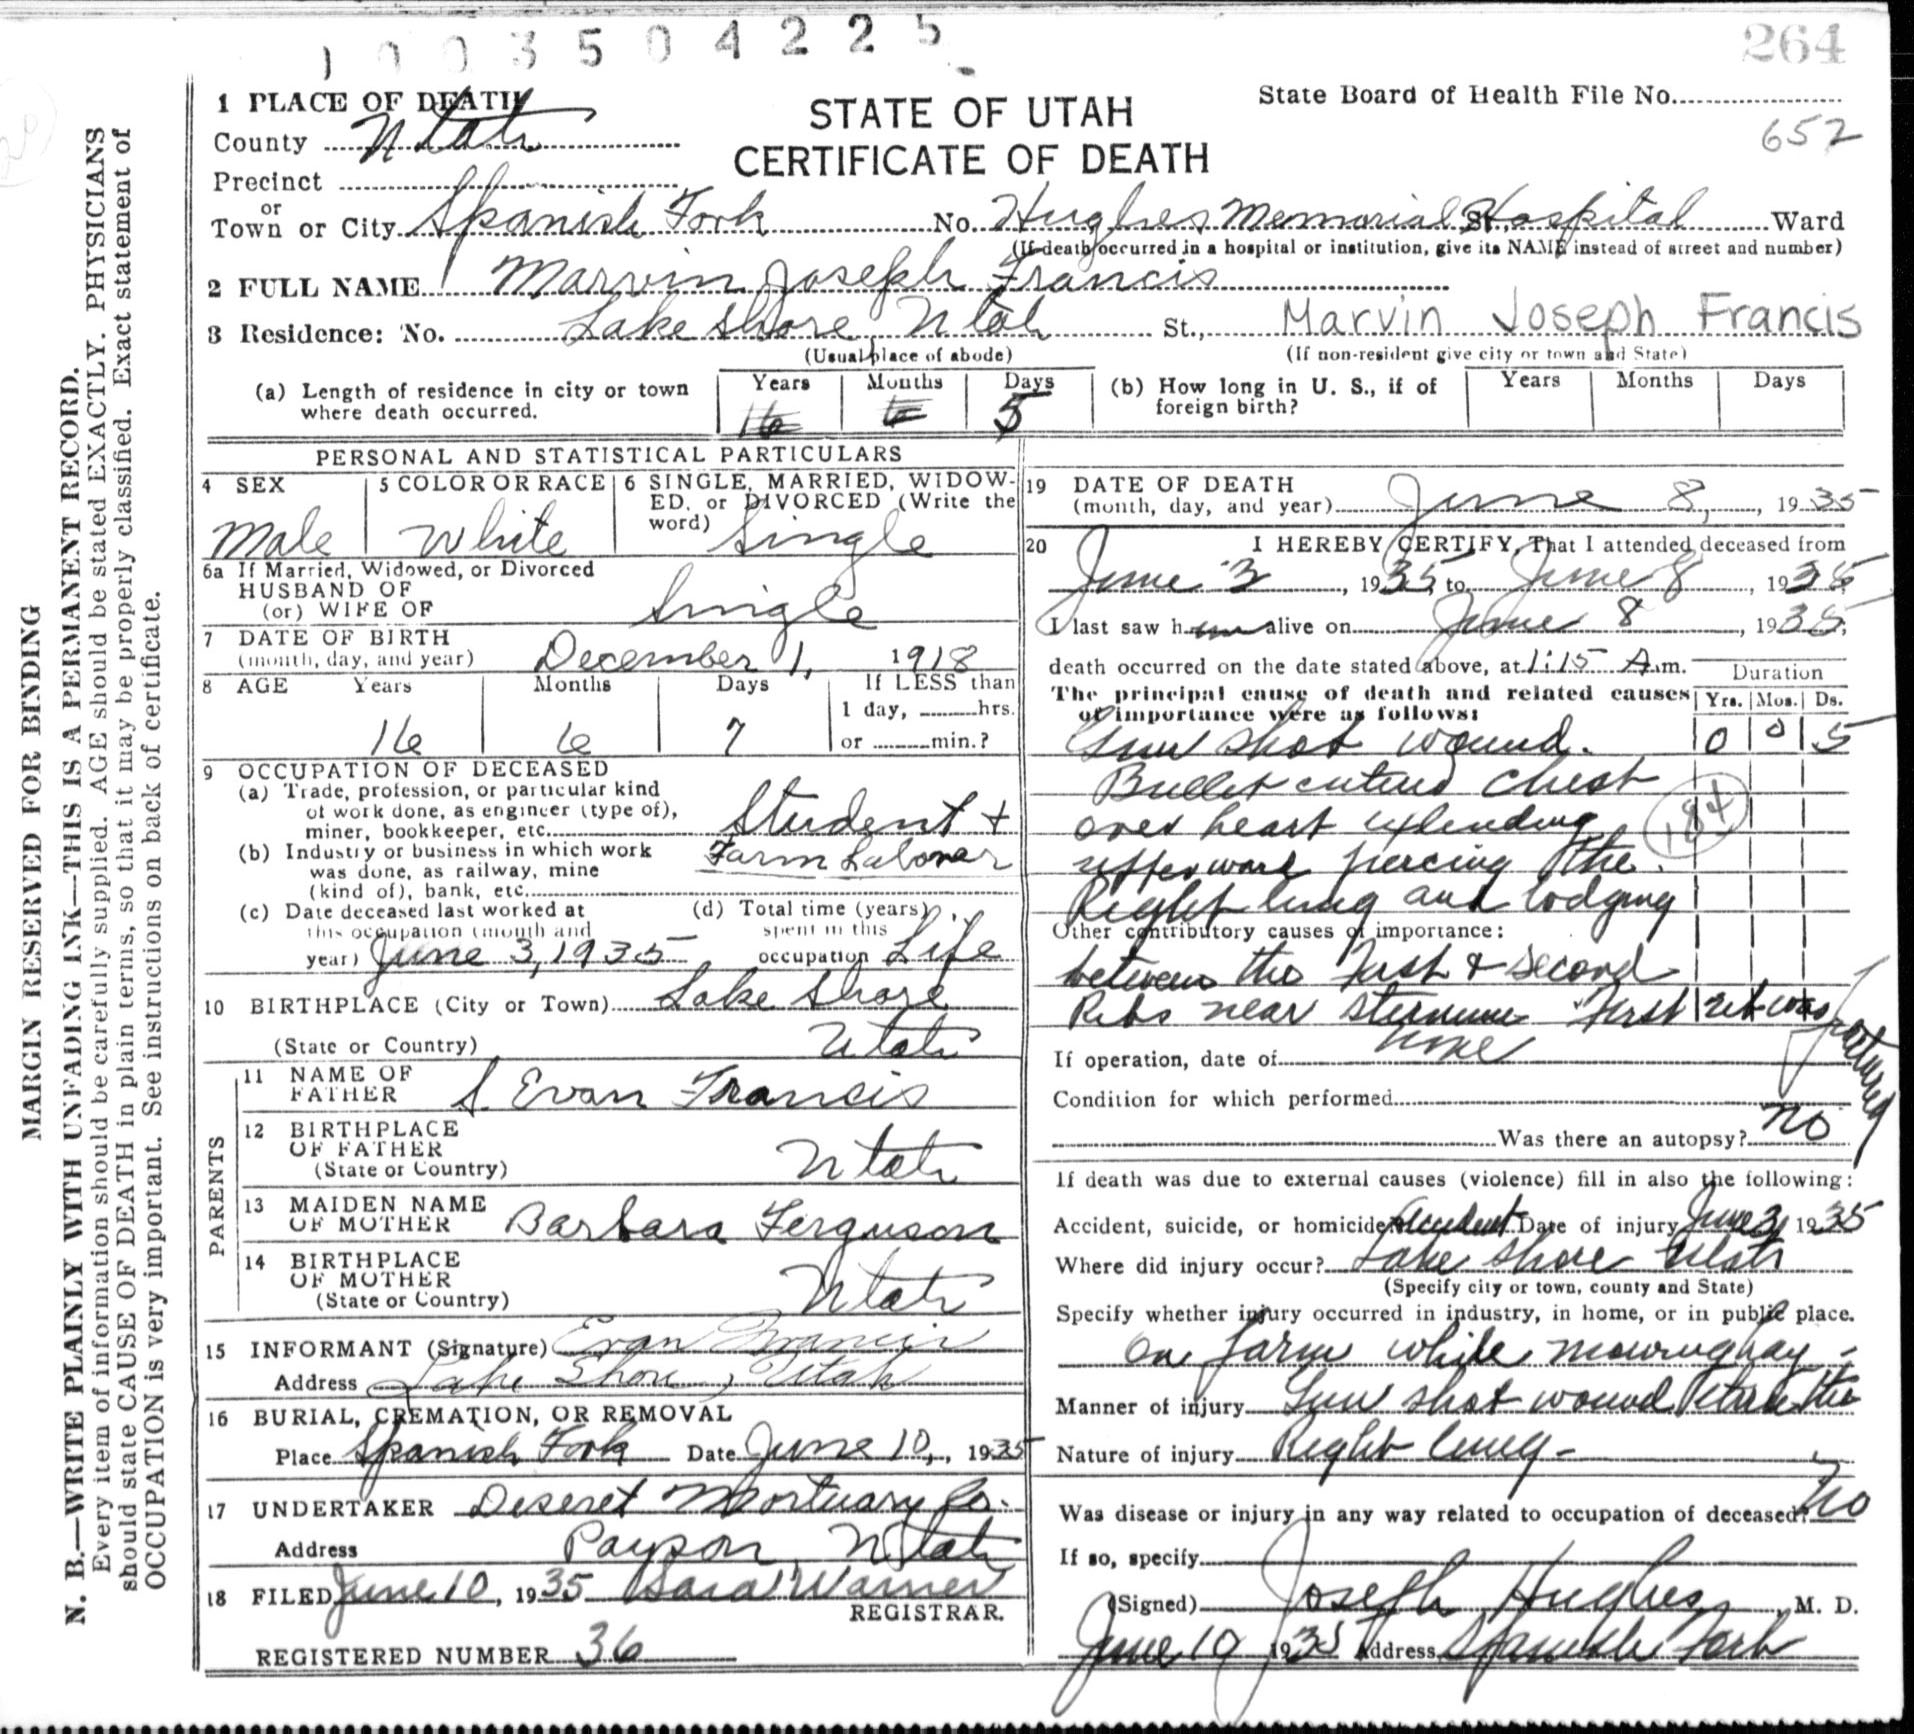 1003504225
264
1 PLACE OF DEATH
STATE OF UTAH
State Board of Health File No.
County Utah
652
CERTIFICATE OF DEATH
Precinct
or
Town or City Spanish Fork No. Hughes Memorial Hospital St., Ward
(If death occurred in a hospital or institution, give its NAME instead of street and number)
2 FULL NAME Marvin Joseph Francis
3 Residence: No. Lake Shore Utah St., Marvin Joseph Francis
(Usual place of abode) (If non-resident give city or town and State)
(a) Length of residence in city or town where death occurred. Years 16 Months 6 Days 5
(b) How long in U. S., if of foreign birth? Years Months Days
PERSONAL AND STATISTICAL PARTICULARS
4 SEX Male
5 COLOR OR RACE White
6 SINGLE, MARRIED, WIDOWED, or DIVORCED (Write the word) Single
6a If Married, Widowed, or Divorced
HUSBAND OF
(or) WIFE OF Single
7 DATE OF BIRTH
(month, day, and year) December 1, 1918
8 AGE Years Months Days If LESS than
1 day, hrs.
16 6 7 or min.?
9 OCCUPATION OF DECEASED
(a) Trade, profession, or particular kind
of work done, as engineer (type of),
miner, bookkeeper, etc. Student +
(b) Industry or business in which work Farm Laborer
was done, as railway, mine
(kind of), bank, etc.
(c) Date deceased last worked at
this occupation (month and
year) June 3, 1935
(d) Total time (years)
spent in this
occupation Life
10 BIRTHPLACE (City or Town) Lake Shore
(State or Country) Utah
PARENTS
11 NAME OF
FATHER S. Evan Francis
12 BIRTHPLACE
OF FATHER
(State or Country) Utah
13 MAIDEN NAME
OF MOTHER Barbara Ferguson
14 BIRTHPLACE
OF MOTHER
(State or Country) Utah
15 INFORMANT (Signature) Evan Francis
Address Lake Shore, Utah
16 BURIAL, CREMATION, OR REMOVAL
Place Spanish Fork Date June 10, 1935
17 UNDERTAKER Deseret Mortuary Co.
Address Payson, Utah
18 FILED June 10, 1935 Sara Warner
REGISTRAR.
REGISTERED NUMBER 36
19 DATE OF DEATH
(month, day, and year) June 8, 1935
20 I HEREBY CERTIFY, That I attended deceased from
June 3, 1935 to June 8, 1935
I last saw him alive on June 8, 1935,
death occurred on the date stated above, at 1:15 A.m.
Duration
The principal cause of death and related causes
of importance were as follows: Yrs. Mos. Ds.
Gun shot wound. 0 0 5
Bullet entered chest
over heart extending 184
upperward piercing the
Right lung and lodging
Other contributory causes of importance:
between the First & Second
Ribs near sternum First rib was fractured
If operation, date of none
Condition for which performed
Was there an autopsy? no
If death was due to external causes (violence) fill in also the following:
Accident, suicide, or homicide? Accident Date of injury June 3, 1935
Where did injury occur? Lake Shore Utah
(Specify city or town, county and State)
Specify whether injury occurred in industry, in home, or in public place.
On farm while mowing hay -
Manner of injury Gun shot wound the
Nature of injury Right lung -
Was disease or injury in any way related to occupation of deceased? No
If so, specify
(Signed) Joseph Hughes, M. D.
June 10 1935 Address Spanish Fork
MARGIN RESERVED FOR BINDING
N. B.—WRITE PLAINLY WITH UNFADING INK—THIS IS A PERMANENT RECORD.
Every item of information should be carefully supplied. AGE should be stated EXACTLY. PHYSICIANS
should state CAUSE OF DEATH in plain terms, so that it may be properly classified. Exact statement of
OCCUPATION is very important. See instructions on back of certificate.